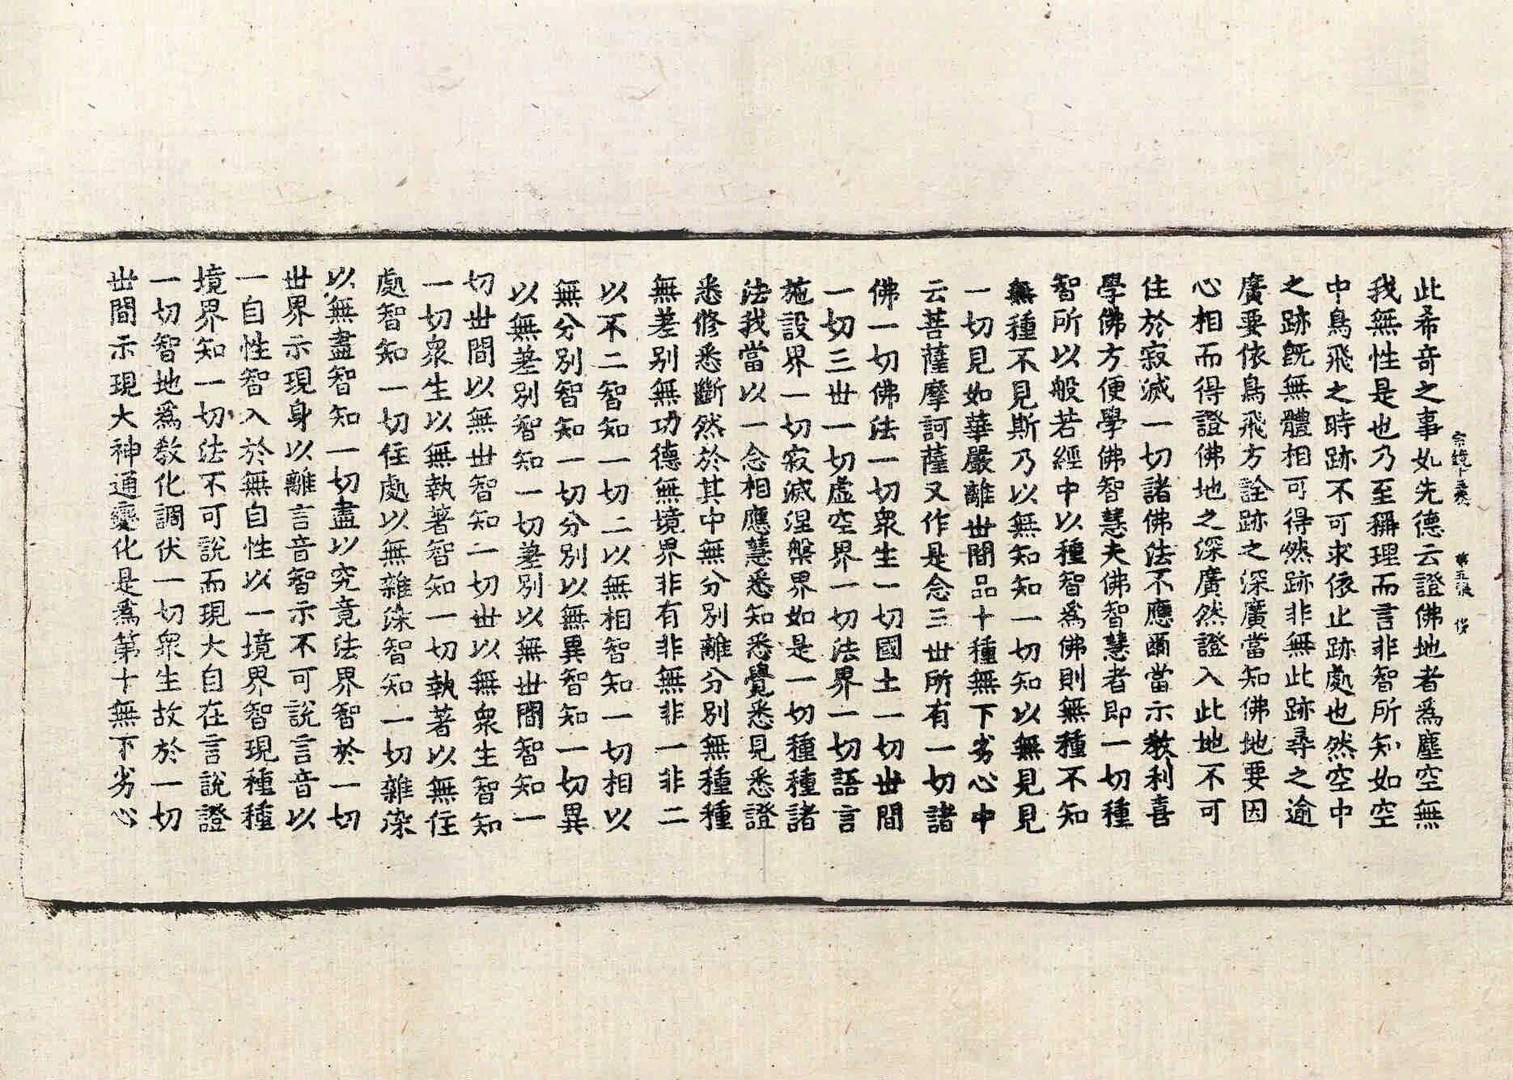 宗鏡十五卷 第五張
此希奇之事如先德云證佛地者爲塵空無
我無性是也乃至稱理而言非智所知如空
中鳥飛之時跡不可求依止跡處也然空中
之跡旣無體相可得然跡非無此跡尋之逾
廣要依鳥飛方詮跡之深廣當知佛地要因
心相而得證佛地之深廣然證入此地不可
住於寂滅一切諸佛法不應爾當示教利喜
學佛方便學佛智慧夫佛智慧者即一切種
智所以般若經中以種智爲佛則無種不知
無種不見斯乃以無知知一切知以無見見
一切見如華嚴離世間品十種無下劣心中
云菩薩摩訶薩又作是念三世所有一切諸
佛一切佛法一切衆生一切國土一切世間
一切三世一切虛空界一切法界一切語言
施設界一切寂滅涅槃界如是一切種種諸
法我當以一念相應慧悉知悉覺悉見悉證
悉修悉斷然於其中無分別離分別無種種
無差別無功德無境界非有非無非一非二
以不二智知一切二以無相智知一切相以
無分別智知一切分別以無異智知一切異
以無差別智知一切差別以無世間智知一
切世間以無世智知一切世以無衆生智知
一切衆生以無執著智知一切執著以無住
處智知一切住處以無雜染智知一切雜染
以無盡智知一切盡以究竟法界智於一切
世界示現身以離言音智示不可說言音以
一自性智入於無自性以一境界智現種種
境界知一切法不可說而現大自在言說證
一切智地爲教化調伏一切衆生故於一切
世間示現大神通變化是爲第十無下劣心